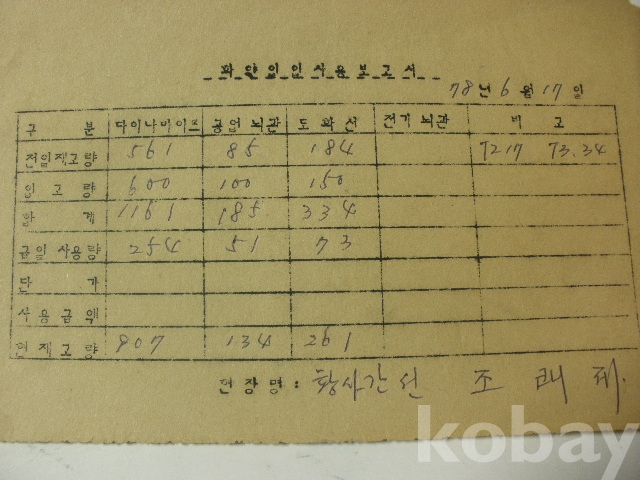 화약의일사용보고서
78년 6월 17일
구 분 다이나마이트 공업뇌관 도화선 전기뇌관 비 고
전일재고량 561 85 184 7217 73.34
입고량 600 100 150
합 계 1161 185 334
금일사용량 254 51 73
단 가
사용금액
현재고량 907 134 261
현장명: 황사간선 조 래 제
kobay